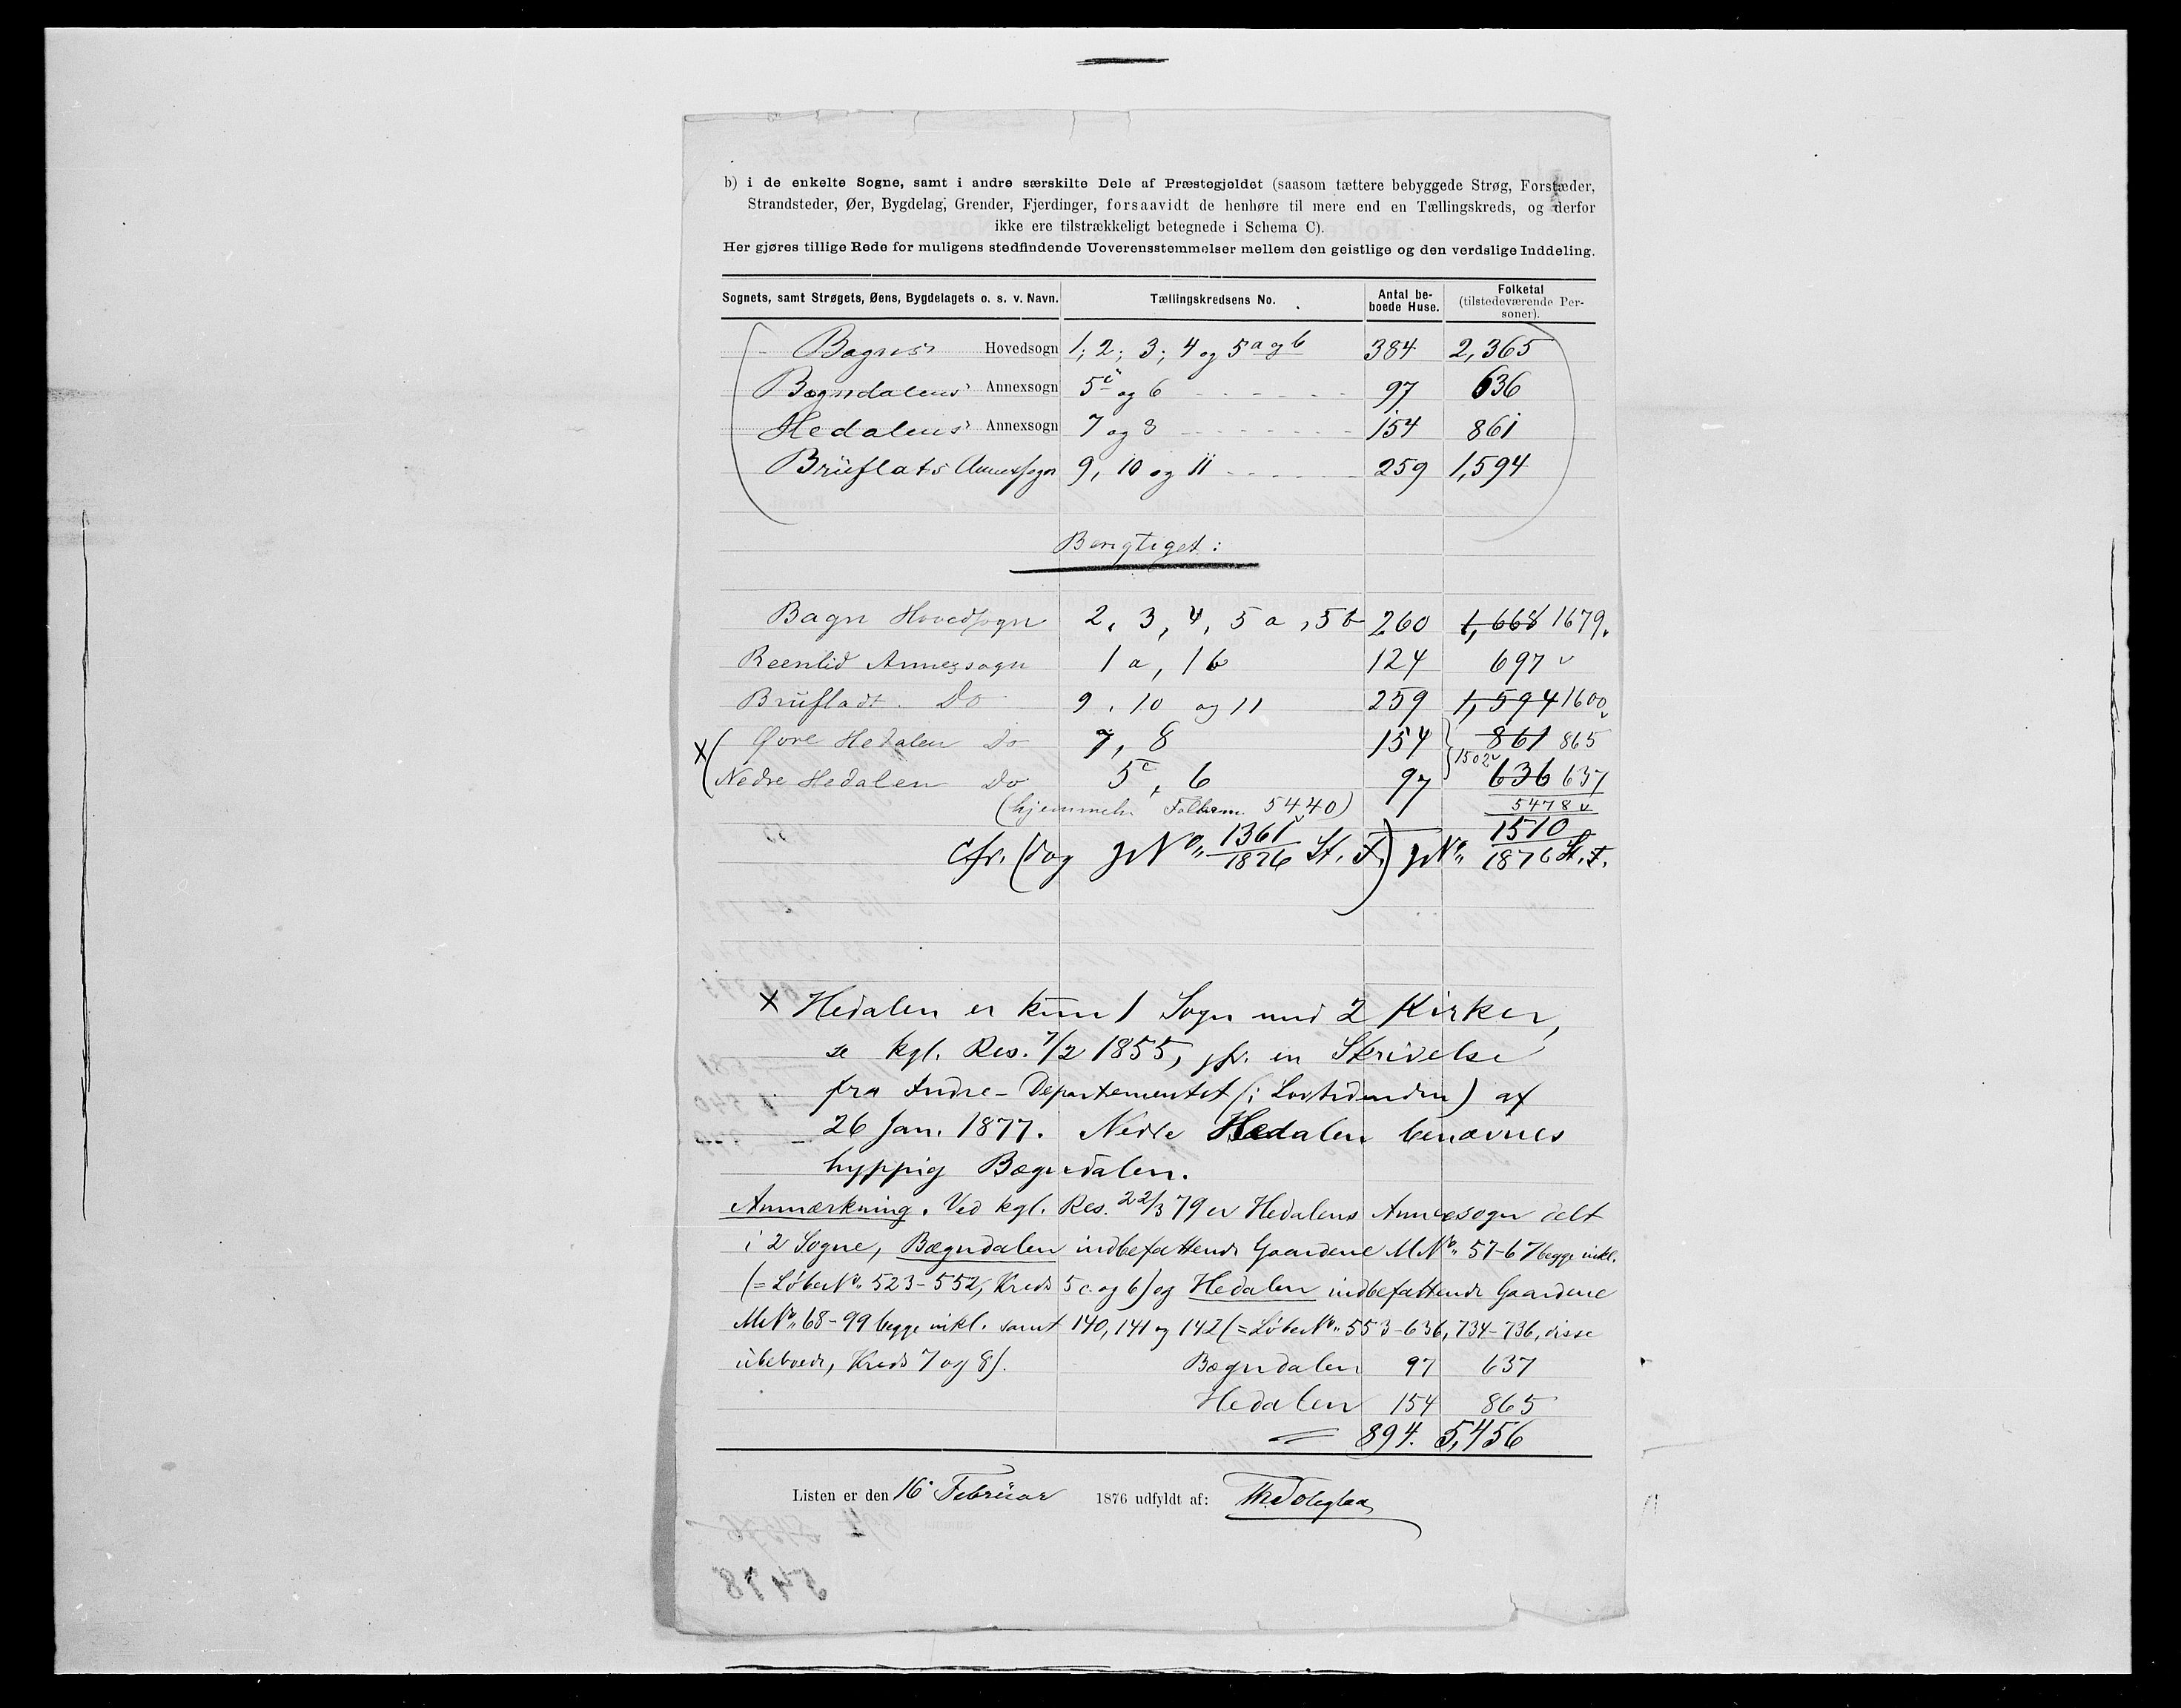 b) i de enkelte Sogne, samt i andre særskilte Dele af Præstegjeldet (saasom tættere bebyggede Strøg, Forstæder,
Strandsteder, Øer, Bygdelag, Grender, Fjerdinger, forsaavidt de henhøre til mere end en Tællingskreds, og derfor
ikke ere tilstrækkeligt betegnede i Schema C).
Her gjøres tillige Rede for muligens stedfindende Uoverensstemmelser mellem den geistlige og den verdslige Inddeling.
Sognets, samt Strøgets, Øens, Bygdelagets o. s. v. Navn. Tællingskredsens No. Antal beboede Huse. Folketal (tilstedeværende Personer).
Bagns Hovedsogn 1; 2; 3; 4 og 5 a og b 384 2,365
Bægndalens Annexsogn 5c og 6 97 636
Hedalens Annexsogn 7 og 8 154 861
Brüflats Annexsogn 9, 10 og 11 259 1,594
Berigtiget:
Bagn Hovedsogn 2, 3, 4, 5 a, 5 b 260 1,668 1679.
Reenlid Annexsogn 1 a, 1 b 124 697 v
Brufladt. Do 9, 10 og 11 259 1,594 1600 v
X Øvre Hedalen Do 7, 8 154 861 865
Nedre Hedalen Do 5c, 6 97 1502 v 636 637
(hjemmeh. Folkem. 5440) 5478 v
cfr. (dog gNo. 1361/1876 St. F.) gNo. 1510/1876 St. F.
X Hedalen er kun 1 Sogn med 2 Kirker,
se kgl. Res. 7/2 1855, jfr. en Skrivelse
fra Indre-Departementet (i Lovtidenden) af
26 Jan. 1877. Nedre Hedalen benævnes
hyppig Bægndalen.
Anmærkning. Ved kgl. Res. 22/3 79 er Hedalens Annexsogn delt
i 2 Sogne, Bægndalen indbefattende Gaardene MNo. 57-67 begge inkl.
(= LøbeNo. 523-552, Kreds 5 c. og 6) og Hedalen indbefattende Gaardene
MNo. 68-99 begge inkl. samt 140, 141 og 142 (= LøbeNo. 553-636, 734-736, disse
ubeboede, Kreds 7 og 8).
Bægndalen 97 637
Hedalen 154 865
= 894. 5,456
Listen er den 16. Februar 1876 udfyldt af: